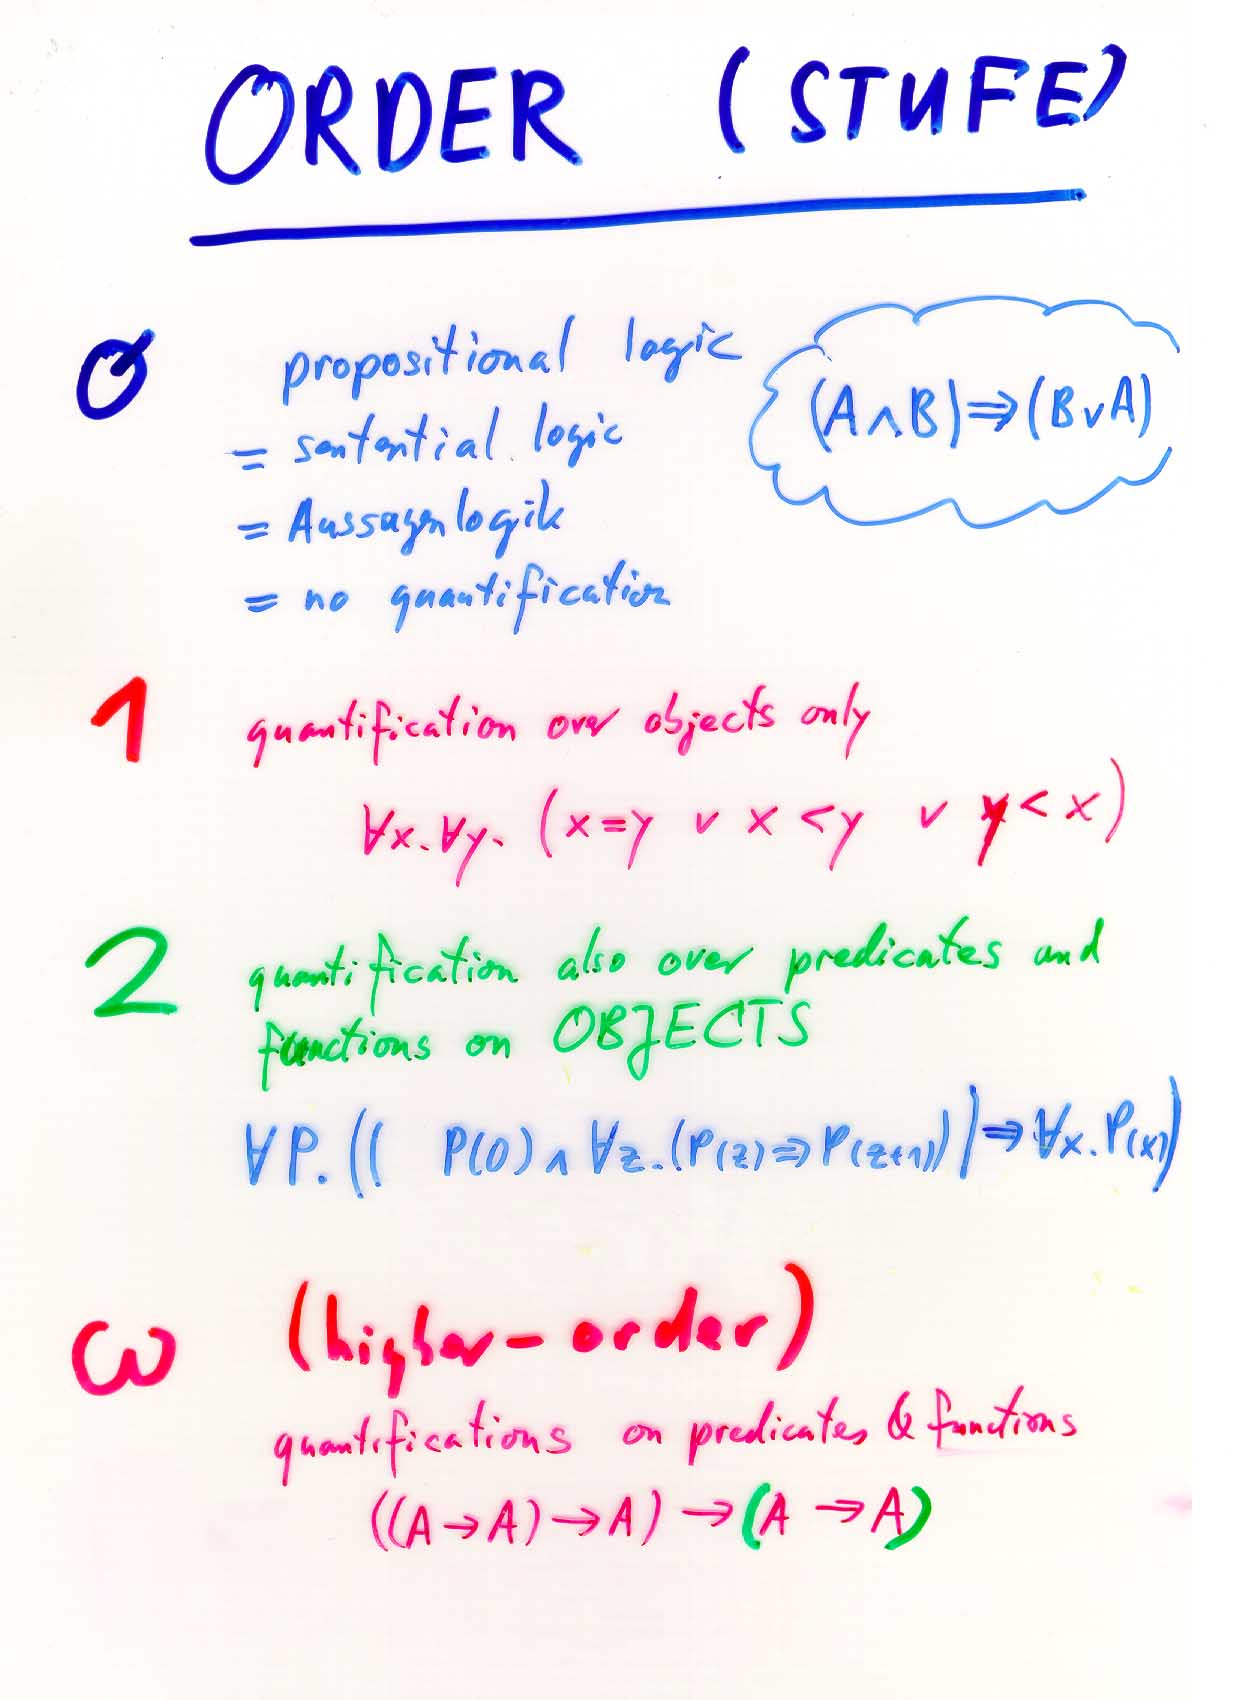 ORDER (STUFE)
0 propositional logic
= sentential logic
(A∧B)⇒(B∨A)
= Aussagenlogik
= no quantification
1 quantification over objects only
∀x.∀y. (x=y ∨ x<y ∨ y<x)
2 quantification also over predicates and
functions on OBJECTS
∀P.(( P(0) ∧ ∀z.(P(z)⇒P(z+1)))⇒∀x.P(x))
ω (higher-order)
quantifications on predicates & functions
((A→A)→A)→(A→A)